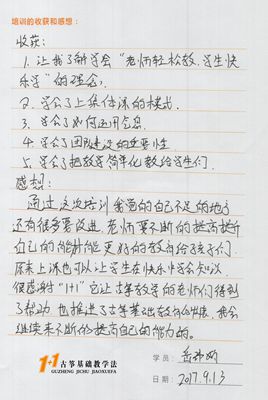 培训的收获和感想：
收获：
1. 让我了解学会“老师轻松教、学生快
乐学”的理念；
2、学会了上集体课的模式．
3、学会了如何运用
4、学会了团队建设的重要性
5、学会了把教学简单化教给学生们．
感想：
通过这次培训我觉的自己不足的地方
还有很多要改进，老师要不断的提高提升
自己的能才能更好的教育给孩子们．
原来上课也可以让学生在快乐中学会知识．
很感谢“1+1”它让古筝教学的老师们得到
了帮助，也推进了古筝基础教育的，我会
继续来不断的提高自己的能力的。
1+1 古筝基础教学法
GUZHENG JICHU JIAOXUEFA
学员：
日期：2017.9.13